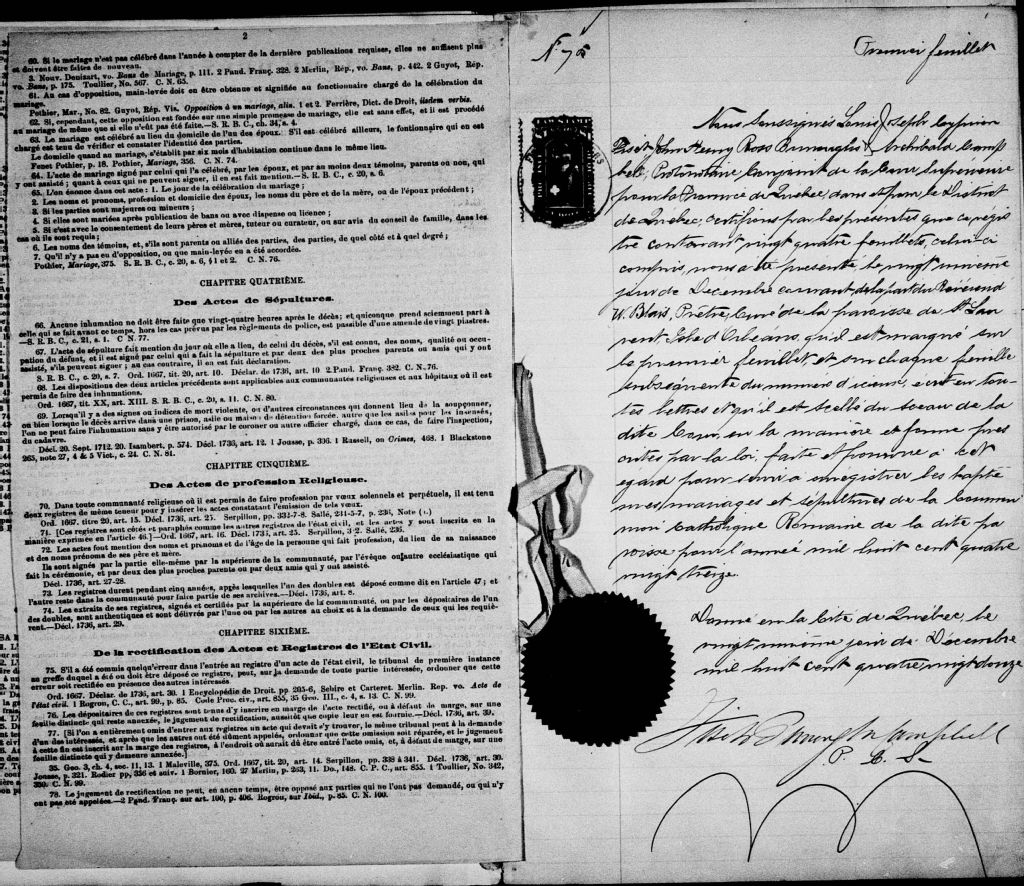 2
60. Si le mariage n'est pas célébré dans l'année à compter de la dernière publications requises, elles ne suffisent plus
et doivent être faites de nouveau.
3. Nouv. Denizart, vo. Bans de Mariage, p. 111. 2 Paud. Franç. 328. 2 Merlin, Rép., vo. Bans, p. 442. 2 Guyot, Rép.
vo. Bans, p. 175. Toullier, No. 567. C. N. 65.
61. Au cas d'opposition, main-levée doit en être obtenue et signifiée au fonctionnaire chargé de la célébration du
mariage.
Pothier, Mar., No. 82. Guyot, Rép. Vis. Opposition à un mariage, alin. 1 et 2. Ferrière, Dict. de Droit, iisdem verbis.
62. Si, cependant, cette opposition est fondée sur une simple promesse de mariage, elle est sans effet, et il est procédé
au mariage de même que si elle n'eût pas été faite.—S. R. B. C., ch. 34, s. 4.
63. Le mariage est célébré au lieu du domicile de l'un des époux. S'il est célébré ailleurs, le fontionnaire qui en est
chargé est tenu de vérifier et constater l'identité des parties.
Le domicile quand au mariage, s'établit par six mois d'habitation continue dans le même lieu.
Fenet Pothier, p. 18. Pothier, Mariage, 356. C. N. 74.
64. L'acte de mariage signé par celui qui l'a célébré, par les époux, et par au moins deux témoins, parents ou non, qui
y ont assisté ; quant à ceux qui ne peuvent signer, il en est fait mention.—S. R. B. C., c. 20, s. 6.
65. L'on énonce dans cet acte : 1. Le jour de la célébration du mariage ;
2. Les noms et pronoms, profession et domicile des époux, les noms du père et de la mère, ou de l'époux précédent ;
3. Si les parties sont majeures ou mineurs ;
4. Si elles sont mariées après publication de bans ou avec dispense ou licence ;
5. Si c'est avec le consentement de leurs pères et mères, tuteur ou curateur, ou sur avis du conseil de famille, dans les
cas où ils sont requis ;
6. Les noms des témoins, et, s'ils sont parents ou alliés des parties, des parties, de quel côté et à quel degré ;
7. Qu'il n'y a pas eu d'opposition, ou que main-levée en a été accordée.
Pothier, Mariage, 375. S. R. B. C., c. 20, s. 6, § 1 et 2. C. N. 76.
CHAPITRE QUATRIÈME.
Des Actes de Sépultures.
66. Aucune inhumation ne doit être faite que vingt-quatre heures après le décès ; et quiconque prend sciemment part à
celle qui se fait avant ce temps, hors les cas prévus par les règlements de police, est passible d'une amende de vingt piastres.
—S. R. B. C., c. 21, s. 1. C N. 77.
67. L'acte de sépulture fait mention du jour où elle a lieu, de celui du décès, s'il est connu, des noms, qualité ou occupation
du défunt, et il est signé par celui qui a fait la sépulture et par deux des plus proches parents ou amis qui y ont
assisté, s'ils peuvent signer ; au cas contraire, il en est fait déclaration.
S. R. B. C., c. 20, s. 7. Ord. 1667, tit. 20, art. 10. Déclar. de 1736, art. 10 2 Pand. Franç. 382. C. N. 76.
68. Les dispositions des deux articles précédents sont applicables aux communautés religieuses et aux hôpitaux où il est
permis de faire des inhumations.
Ord. 1667, tit. XX, art. XIII. S. R. B. C., c. 20, s. 11. C. N. 80.
69. Lorsqu'il y a des signes ou indices de mort violente, ou d'autres circonstances qui donnent lieu de la soupçonner,
ou bien lorsque le décès arrive dans une prison, asile ou maison de détention forcée, autre que les asiles pour les insensés,
l'on ne peut faire l'inhumation sans y être autorisé par le coroner ou autre officier chargé, dans ce cas, de faire l'inspection,
du cadavre.
Décl. 20. Sept. 1712. 20. Isambert, p. 574. Décl. 1736, art. 12. 1 Jousse, p. 306. 1 Russell, on Crimes, 468. 1 Blackstone
265, note 27, 4 & 5 Vict., c. 24. C. N. 81.
CHAPITRE CINQUIÈME.
Des Actes de profession Religieuse.
70. Dans toute communauté religieuse où il est permis de faire profession par vœux solennels et perpétuels, il est tenu
deux registres de même teneur pour y insérer les actes constatant l'émission de tels vœux.
Ord. 1667. titre 20, art. 15. Décl. 1736, art. 25. Serpillon, pp. 332-7-8. Sallé, 231-5-7, p. 236, Note
71. [Ces registres sont côtés et paraphés comme les autres registres de l'état civil, et les actes y sont inscrits en la
manière exprimée en l'article 46.]—Ord. 1667, art. 16. Décl. 1735, art. 25. Serpillon, 3-2. Sallé, 236.
72. Les actes font mention des noms et pronoms et de l'âge de la personne qui fait profession, du lieu de sa naissance
et des noms prénoms de ses père et mère.
Ils sont signés par la partie elle-même par la supérieure de la communauté, par l'évêque ou autre ecclésiastique qui
fait la cérémonie, et par deux des plus proches parents ou par deux amis qui y ont assisté.
Décl. 1736, art. 27-28.
73. Les registres durent pendant cinq années, après lesquelles l'un des doubles est déposé comme dit en l'article 47 ; et
l'autre reste dans la communauté pour faire partie de ses archives.—Décl. 1736, art. 8.
74. Les extraits de ses registres, signés et certifiés par la supérieure de la communauté, ou par les dépositaires de l'un
des doubles, sont authentiques et sont délivrés par l'une ou par les autres au choix et à la demande de ceux qui les requièrent.—Décl.
1736, art. 29.
CHAPITRE SIXIÈME.
De la rectification des Actes et Registres de l'Etat Civil.
75. S'il a été commis quelqu'erreur dans l'entrée au registre d'un acte de l'état civil, le tribunal de première instance
au greffe duquel a été ou doit être déposé ce registre, peut, sur la demande de toute partie intéressée, ordoner que cette
erreur soit rectifiée en présence des autres intéressés
Ord. 1667. Déclar. de 1736, art. 30. 1 Encyclopédie de Droit. pp. 205-6, Sebire et Carteret. Merlin. Rep. vo. Acte de
l'état civil. 1 Rogron, C. C., art. 99., p. 85. Code Proc. civ., art. 855, 35 Geo. III., c. 4, s. 13. C. N. 99.
76. Les dépositaires de ces registres sont tenus d'y inscrire en marge de l'acte rectifié, ou à défaut de marge, sur une
feuille distincte qui reste annexée, le jugement de rectification, aussitôt que copie leur en est fournie.—Décl. 1736, art. 39.
77. [Si l'on a entièrement omis d'entrer aux registres un acte qui devait s'y trouver, le même tribunal peut à la demande
d'un des intéressés, et après que les autres ont été dûment appelés, ordonner que cette omission soit réparée, et le jugement
à cette fin est inscrit sur la marge des registres, à l'endroit où aurait dû être entré l'acte omis, et, à défaut de marge, sur une
feuille distincte qui y demeure annexée.]
35. Geo. 3, ch. 4, sec. 11, 13. 1 Maleville, 375. Ord. 1667, tit. 20, art. 14. Serpillon, pp. 338 à 341. Décl. 1736, art. 30.
Jousse, p. 321. Rodier pp, 336 et suiv. 1 Bornier, 160. 27 Merlin, p. 263, 11. Do., 148. C. P. C., art. 855. 1 Toullier, No. 342,
350. C. N. 99.
78. Le jugement de rectification ne peut, en aucun temps, être opposé aux parties qui ne l'ont pas demandé, ou qui n'y
ont pas été appelées.—2 Pand. Franç. sur art. 100, p. 406. Rogrou, sur Ibid., p. 85. C. N. 100.
Premier feuillet
Nous Soussignés Louis Joseph Cyprien
Fiset, John Henry Ross Burroughs & Archibald Camp
bell, Protonotaire Conjoint de la Cour Supérieure
pour la Province de Québec, dans et pour le District
de Québec, certifions par les présentes que ce régis
tre contenant vingt quatre feuillets, celui-ci
compris, nous a été présenté, le vingt unième
jour de Décembre courant de la part du Révérend
W. Blais, Prêtre, Curé de la paroisse de St Lau
rent Isle d'Orléans, qu'il est marqué sur
le premier feuillet et sur chaque feuille
subséquente du numéro d'iceux, écrit en tou-
tes lettres et qu'il est scellé du sceau de la
dite Cour, en la manière et forme pres
crites par la loi, faite et pourvue à cet
égard pour servir à enrégistrer les baptê
mes, mariages et sépultures de la Commu
nion Catholique Romaine de la dite pa
roisse pour l'année mil huit cent quatre
vingt treize.
Donné en la Cité de Québec, le
vingt unième jour de Décembre
mil huit cent quatre vingt douze
Fiset Burroughs Campbell
P. C. S.